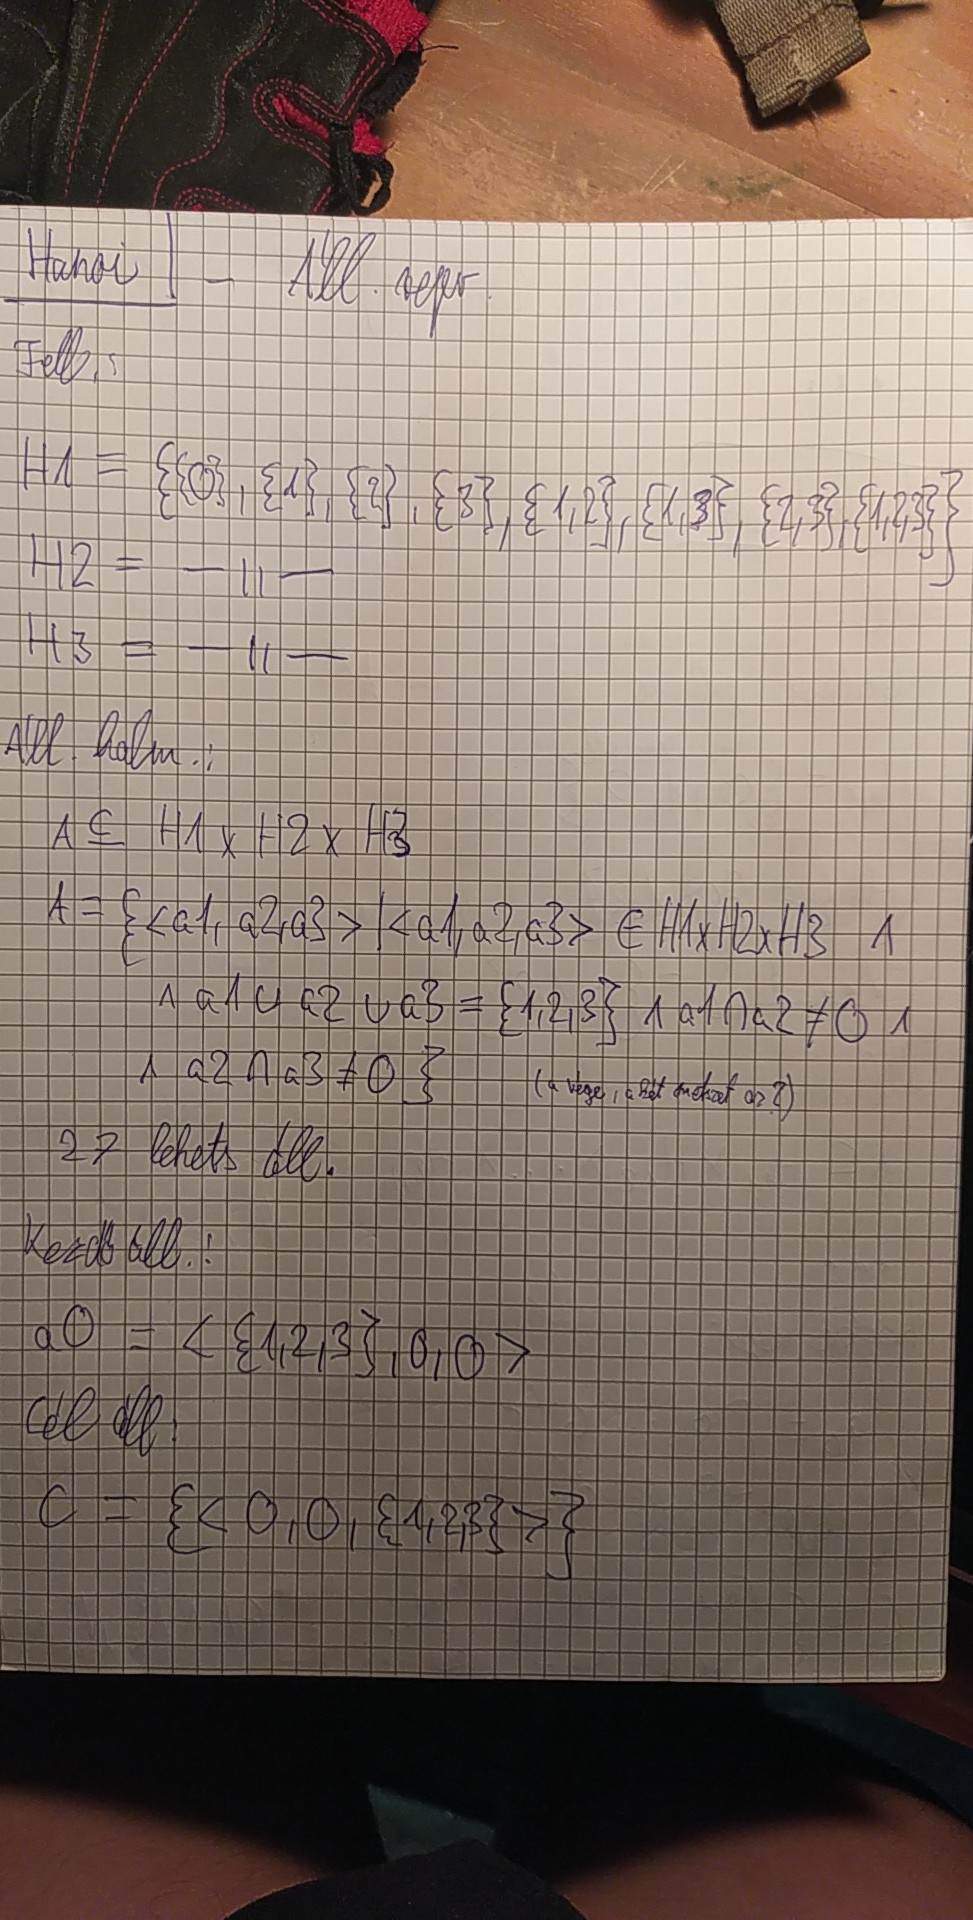 Hanoi - Áll. repr.
Felb.:
H1 = {{0}, {1}, {2}, {3}, {1,2}, {1,3}, {2,3}, {1,2,3}}
H2 = —〃—
H3 = —〃—
Áll. halm.:
A ⊆ H1 x H2 x H3
A = {<a1, a2, a3> | <a1, a2, a3> ∈ H1xH2xH3 ∧
∧ a1 ∪ a2 ∪ a3 = {1,2,3} ∧ a1 ∩ a2 ≠ 0 ∧
∧ a2 ∩ a3 ≠ 0 } (a vége, a két metszet az ?)
27 lehets áll.
Kezdő áll.:
a0 = < {1,2,3}, 0, 0 >
Cél áll:
C = {< 0, 0, {1,2,3} >}